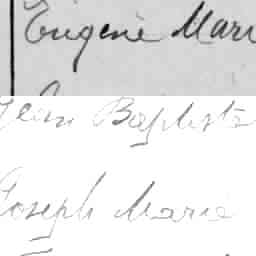 Eugène Mari
Jean Baptiste
Joseph Marie